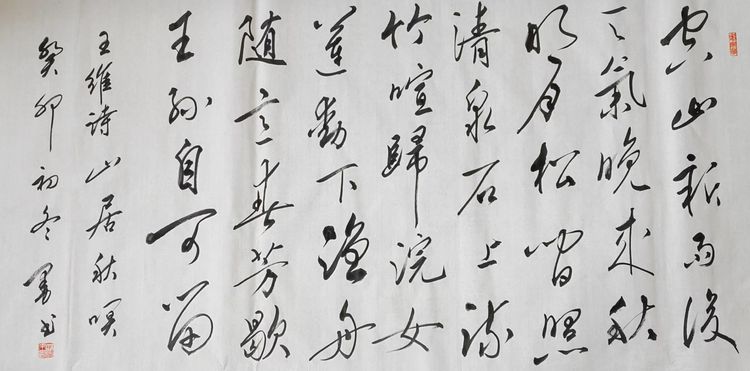 空山新雨後
天氣晚来秋
明月松間照
清泉石上流
竹喧歸浣女
蓮動下漁舟
随意春芳歇
王孫自可留
王維詩山居秋暝
癸卯初冬 書